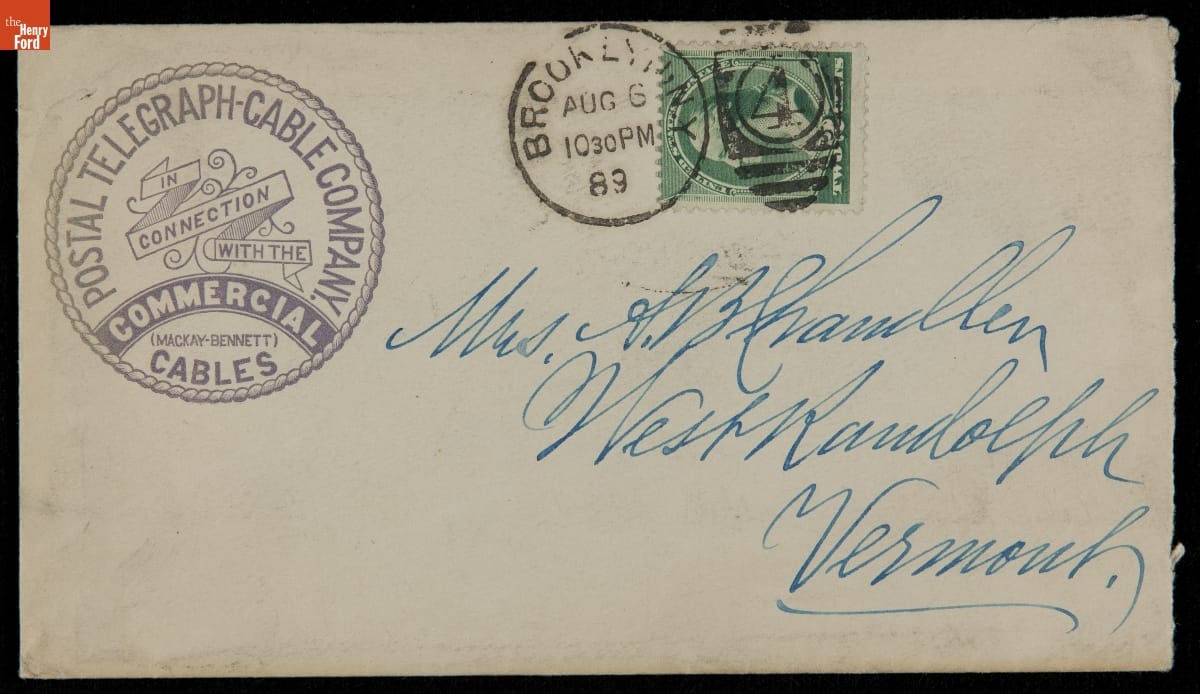 the
Henry
Ford
POSTAL TELEGRAPH-CABLE COMPANY,
IN
CONNECTION
WITH THE
COMMERCIAL
(MACKAY-BENNETT)
CABLES
BROOKLYN N.Y.
AUG 6
1030PM
89
4
Mrs. A.B. Chandler
West Randolph
Vermont.